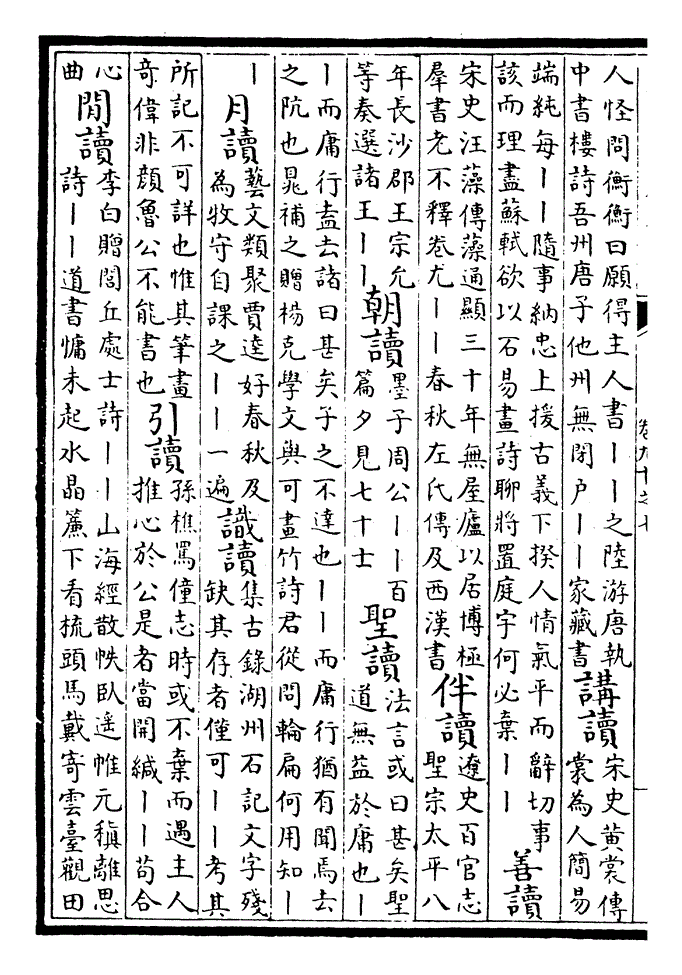 人怪問衡衡曰願得主人書丨丨之陸游唐執
中書樓詩吾州唐子他州無閉户丨丨家藏書
講讀
宋史黃裳傳
裳為人簡易
端純每丨丨隨事納忠上援古義下揆人情氣平而辭切事
該而理盡蘇軾欲以石易畫詩聊將置庭宇何必棄丨丨
善讀
宋史汪藻傳藻通顯三十年無屋廬以居博極
羣書老不釋卷尤丨丨春秋左氏傳及西漢書
伴讀
遼史百官志
聖宗太平八
年長沙郡王宗允
等奏選諸王丨丨
朝讀
墨子周公丨丨百
篇夕見七十士
聖讀
法言或曰甚矣聖
道無益於庸也丨
丨而庸行盍去諸曰甚矣子之不達也丨丨而庸行猶有聞焉去
之阬也晁補之贈楊克學文與可畫竹詩君從問輪扁何用知丨
丨
月讀
藝文類聚賈逵好春秋及
為牧守自課之丨丨一遍
識讀
集古錄湖州石記文字殘
缺其存者僅可丨丨考其
所記不可詳也惟其筆畫
奇偉非顏魯公不能書也
引讀
孫樵罵僮志時或不棄而遇主人
推心於公是者當開緘丨丨苟合
心
曲
閒讀
李白贈閭丘處士詩丨丨山海經散帙臥遥帷元稹離思
詩丨丨道書慵未起水晶簾下看梳頭馬戴寄雲臺觀田